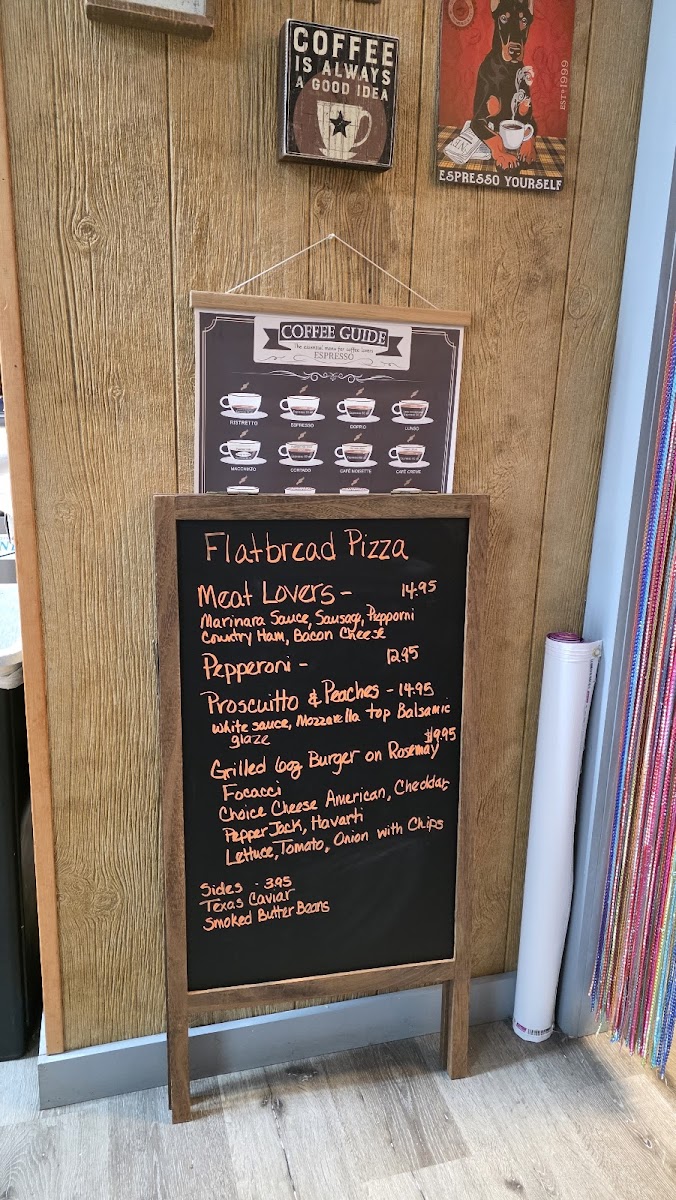 COFFEE
IS ALWAYS
A GOOD IDEA
EST. 1999
ESPRESSO YOURSELF
COFFEE GUIDE
The essential menu for coffee lovers
ESPRESSO
RISTRETTO ESPRESSO DOPPIO LUNGO
MACCHIATO CORTADO CAFÉ NOISETTE CAFÉ CREME
Flatbread Pizza
Meat Lovers - 14.95
Marinara Sauce, Sausage, Pepporni
Country Ham, Bacon Cheese
Pepperoni - 12.95
Proscuitto & Peaches - 14.95
white sauce, Mozzarella top Balsamic
glaze
$9.95
Grilled 6oz Burger on Rosemay
Focacci
Choice Cheese American, Cheddar,
Pepper Jack, Havarti
Lettuce, Tomato, Onion with Chips
Sides - 3.95
Texas Caviar
Smoked Butter Beans